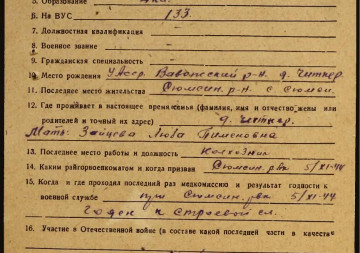 5. Образование
6. На ВУС 133.
7. Должностная квалификация —
8. Военное звание —
9. Гражданская специальность —
10. Место рождения УАССР. Вавожский р-н. д.
11. Последнее место жительства Сюмсин. р-н с. Сюмси.
12. Где проживает в настоящее время семья (фамилия, имя и отчество жены или
родителей и точный их адрес) д.
Мать: Зайцева Люба Пименовна
13. Последнее место работы и должность Колхозник
14. Каким райгорвоенкоматом и когда призван Сюмсин. рвк 5/XI-44
15. Когда и где проходил последний раз медкомиссию и результат годности к
военной службе при Сюмсин. рвк 5/XI-44
Годен к строевой сл.
16. Участие в Отечественной войне (в составе какой последней части в качеств